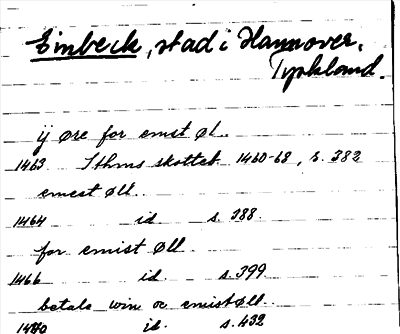 Einbeck, stad i Hannover,
Tyskland.
ij øre for emst øl.
1463 Sthms skotteb. 1460-68, s. 382
emest øll.
1464 id s. 388.
for emist øll
1466 id. s. 399
betala win oc emist øll.
1470 id. s. 432